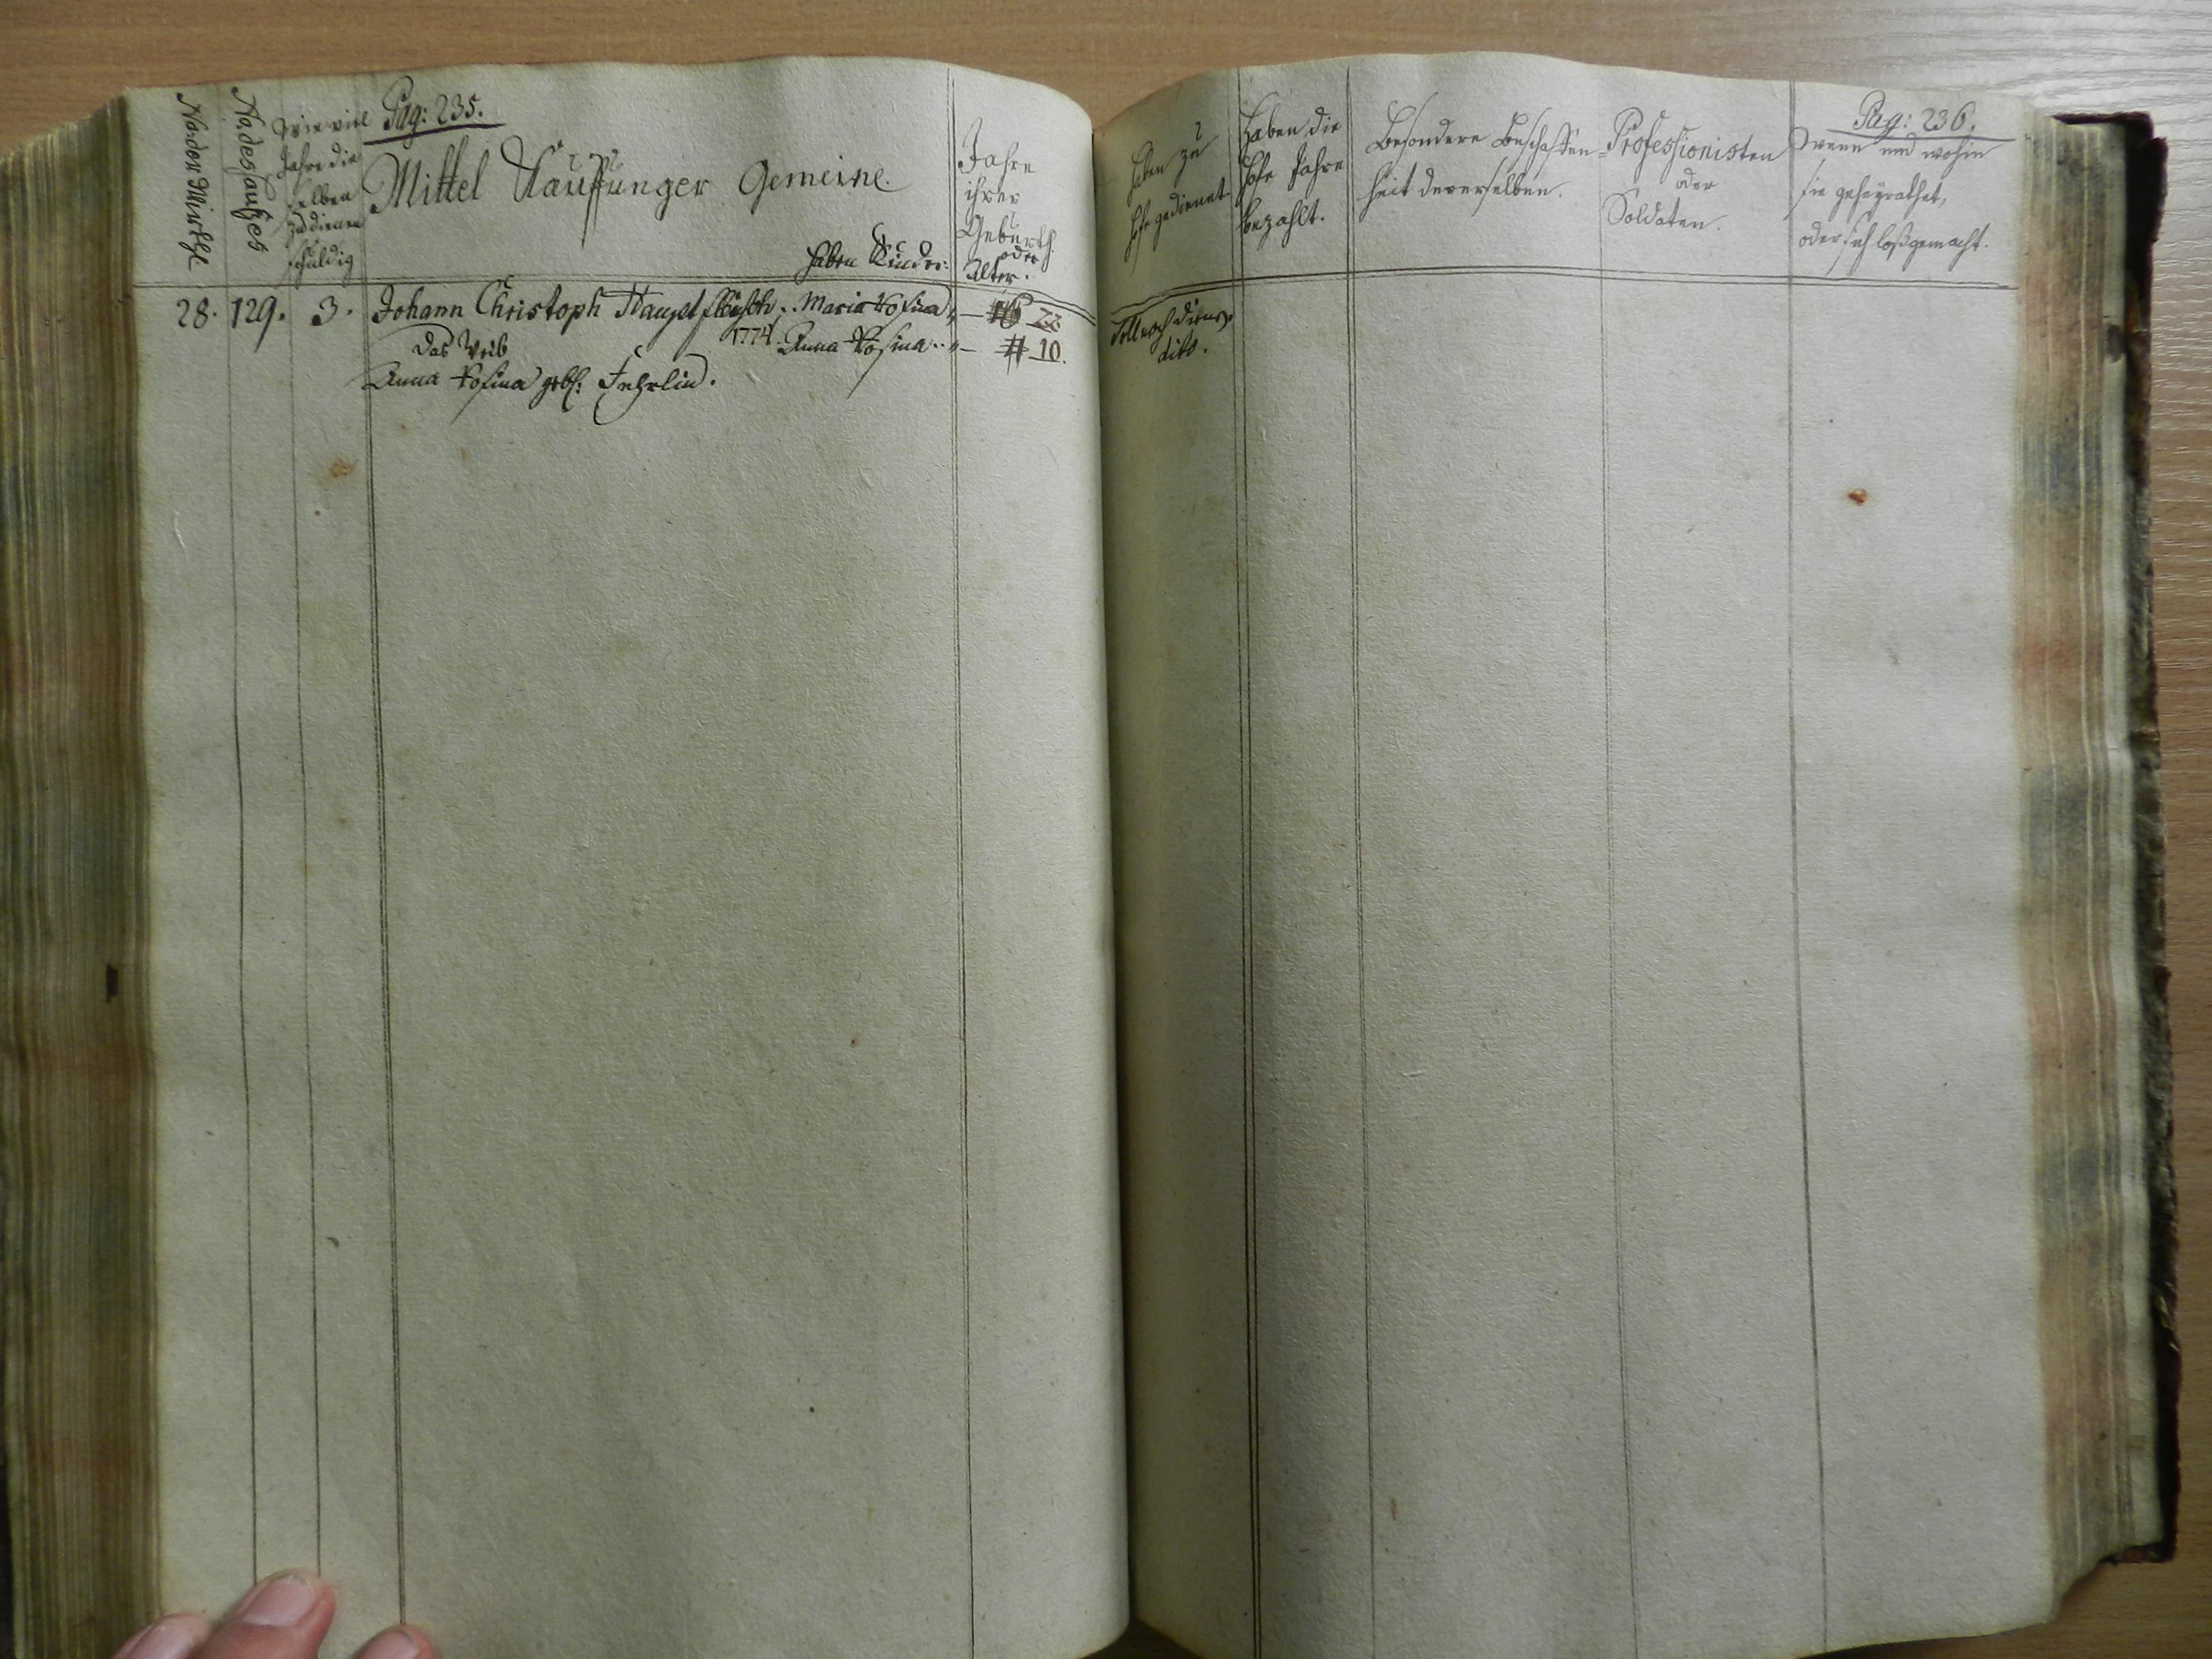 Pag: 235.
No: der Wirthe
No. des Hauses
Wie viel
Jahre die
selben
zu dienen
schuldig
Mittel Kauffunger Gemeine.
haben Kinder:
Jahre
ihrer
Geburth
oder
Alter.
28. 129. 3. Johann Christoph Haupt Maria Rosina 22
Das Weib 1774. Anna Rosina 10.
Anna Rosina geb: Fehrlin.
Pag: 236.
haben zu
Hofe gedienet
Haben die
Hofe Jahre
bezahlt.
Besondere Beschaffen-
heit dererselben.
Professionisten
oder
Soldaten.
wenn und wohin
sie geheyrathet,
oder sich loßgemacht.
Soll noch dienen
dito.